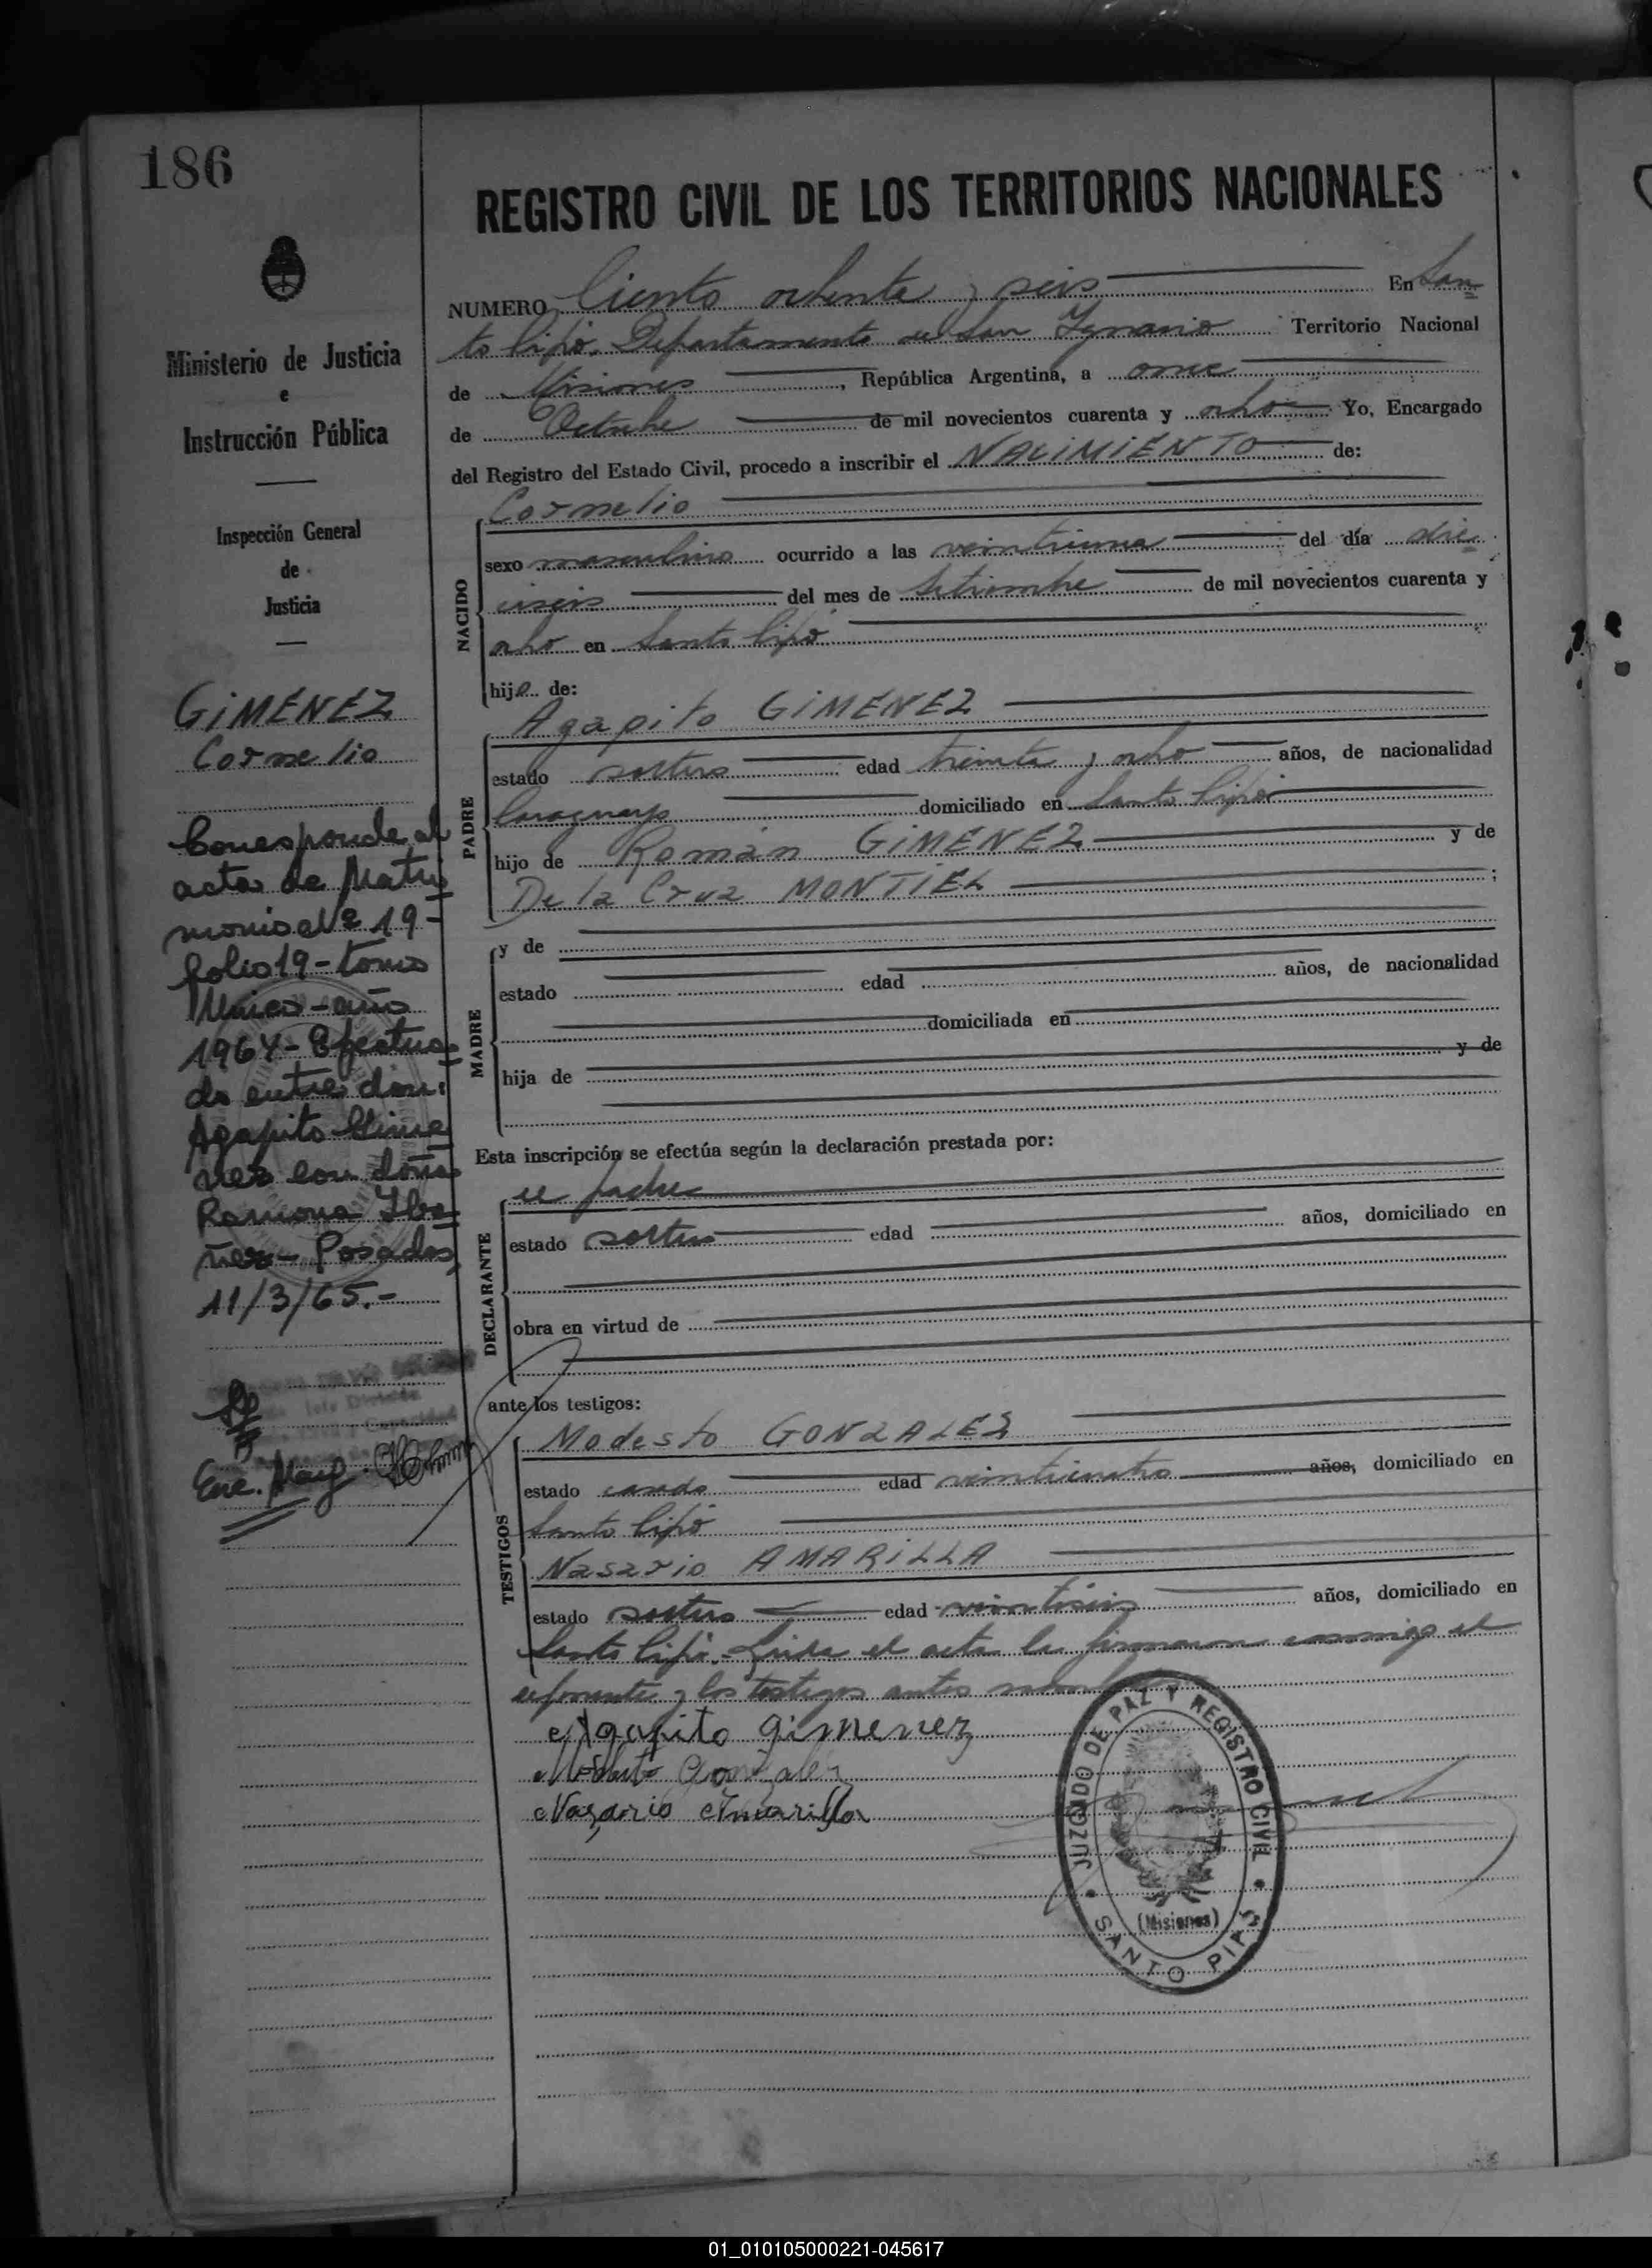 186
REGISTRO CIVIL DE LOS TERRITORIOS NACIONALES
Ministerio de Justicia
e
Instrucción Pública
Inspección General
de
Justicia
GiMENEZ
Cornelio
Corresponde al
acta de Matri
monio Nº 19-
folio 19 - tomo
Unico - año
1964 - Efectua
do entre don:
Agapito Gime
nez con doña
Ramona Iba
ñez - Posadas,
11/3/65.-
Enc.
NUMERO Ciento ochenta y seis En San
to Pipó. Departamento de San Ignacio Territorio Nacional
de Misiones, República Argentina, a once
de Octubre de mil novecientos cuarenta y ocho Yo, Encargado
del Registro del Estado Civil, procedo a inscribir el NACIMIENTO de:
NACIDO
Cornelio
sexo masculino ocurrido a las veintiuna del día die
ciseis del mes de Setiembre de mil novecientos cuarenta y
ocho en Santo Pipó
hijo de:
PADRE
Agapito GIMENEZ
estado soltero edad treinta y ocho años, de nacionalidad
Paraguayo domiciliado en Santo Pipó
hijo de Román GIMENEZ y de
De la Cruz MONTIEL ;
MADRE
y de
estado edad años, de nacionalidad
domiciliada en
hija de y de
Esta inscripción se efectúa según la declaración prestada por:
DECLARANTE
el padre
estado soltero edad años, domiciliado en
obra en virtud de
ante los testigos:
TESTIGOS
Modesto GONZALEZ
estado casado edad veinticuatro años, domiciliado en
Santo Pipó
Nasario AMARILLA
estado soltero edad veintiseis años, domiciliado en
Santo Pipó. - Leida el acta la firmaron conmigo el
exponente y los testigos antes
Agapito Gimenez
Modesto Gonzalez
Nazario Amarilla
JUZGADO DE PAZ Y REGISTRO CIVIL
(Misiones)
SANTO PIPÓ
01_010105000221-045617